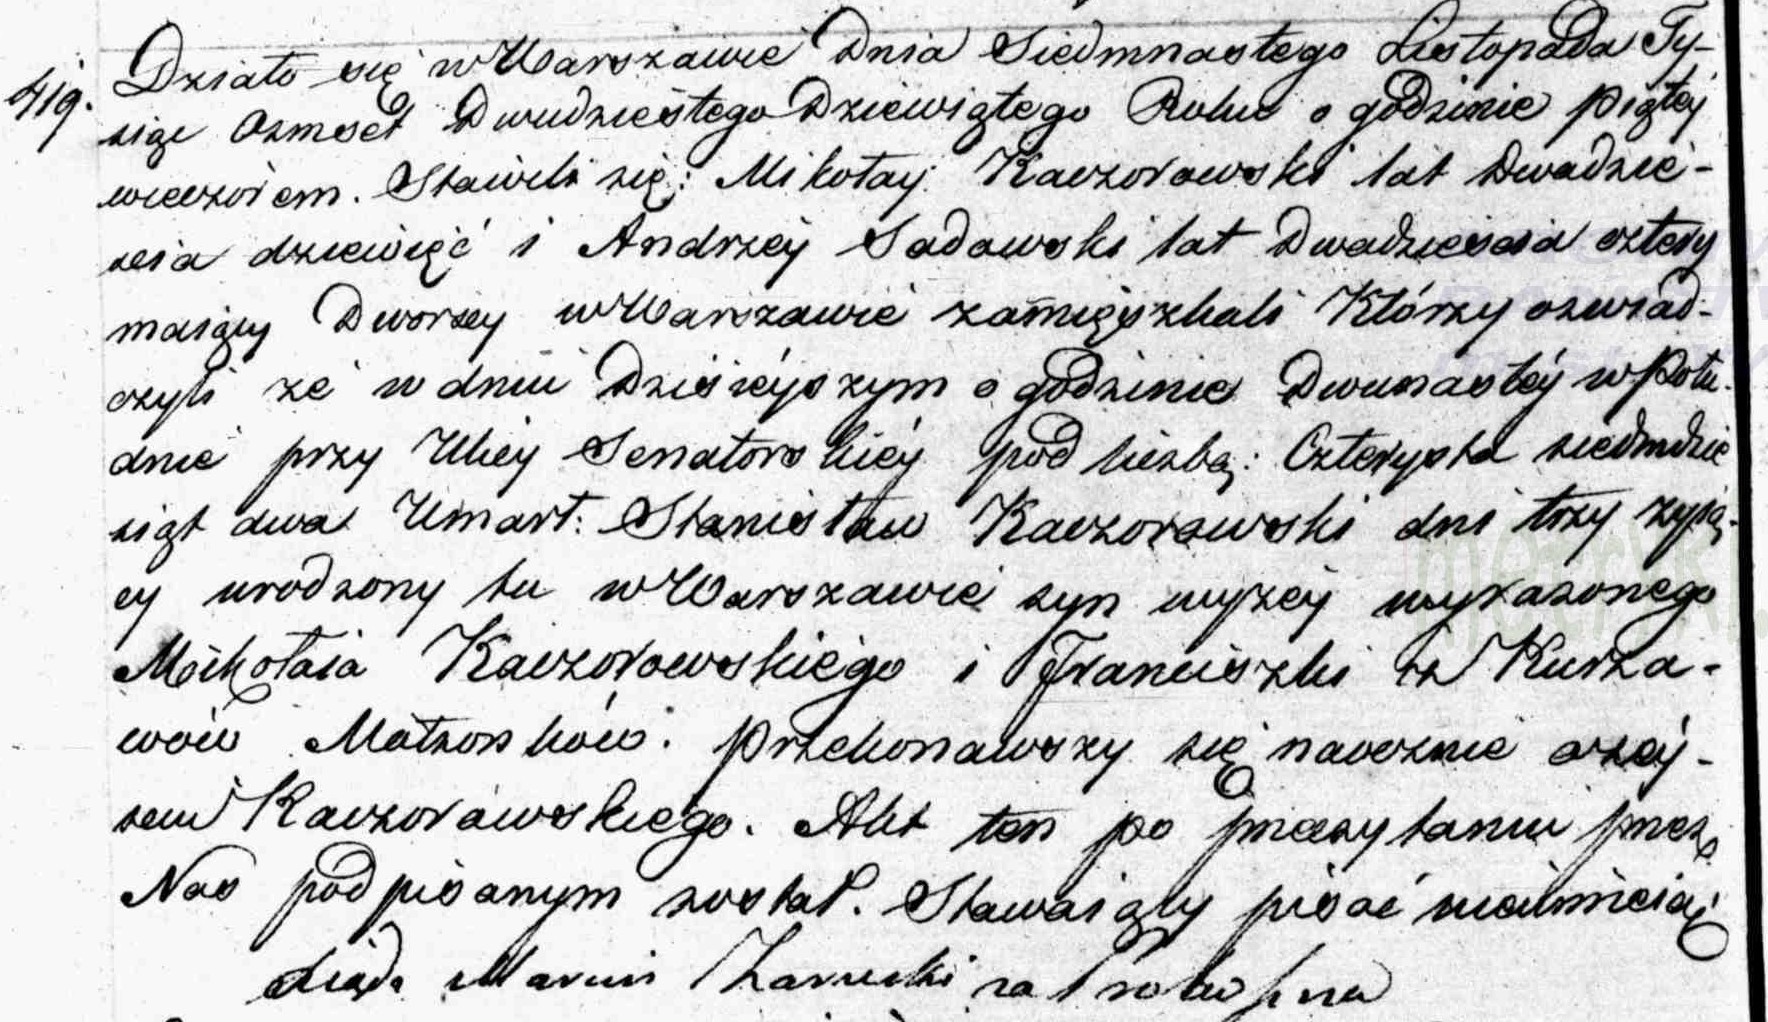 419. Działo się w Warszawie Dnia Siedmnastego Listopada Ty-
siąc Osmset Dwudziestego Dziewiątego Roku o godzinie piątey
wieczorem. Stawili się: Mikołay Kaczorowski lat Dwadzie-
scia dziewięć i Andrzey Sadowski lat Dwadziescia cztery
maiący Dworscy w Warszawie zamięszkali Którzy oswiad-
czyli że w dniu Dzisieyszym o godzinie Dwunastéy w Połu-
dnie przy Ulicy Senatorskiéy pod liczbą: Czterysta siedmdzie
siąt dwa Umarł: Stanisław Kaczorowski dni trzy żyią-
cy urodzony tu w Warszawie syn wyżey wyrażonego
Mikołaia Kaczorowskiego i Franciszki z Kurza-
wów Małżonków. Przekonawszy się naocznie o zey-
sciu Kaczorowskiego. Akt ten po przeczytaniu przez
Nas podpisanym został. Stawaiący pisać nieumieią
Xiądz Marcin Zarucki za Proboszcza